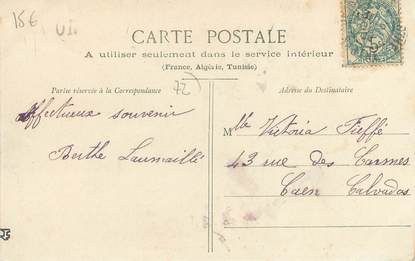 15€
U.I.
CARTE POSTALE
A utiliser seulement dans le service intérieur
(France, Algérie, Tunisie)
Partie réservée à la Correspondance
72
Adresse du Destinataire
Affectueux souvenir
Berthe Laumaillé
Mlle Victoria Fieffé
43 rue des Carmes
Caen Calvados